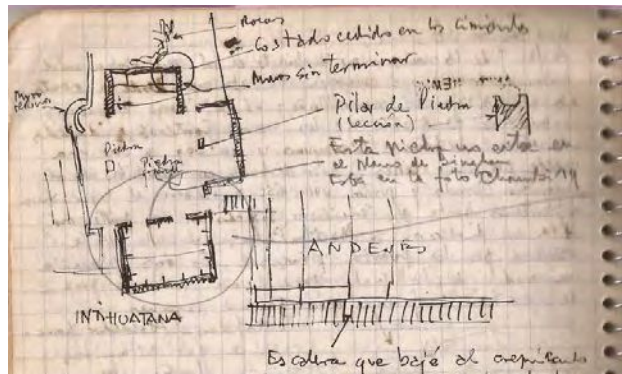 Rocas
Costado cedido en los cimientos
Muro sin terminar
Muro
Pilar de Piedra
(sección)
Piedra
Piedra
Esta piedra no esta en
el plano de Bingham
Está en la foto Chambi
ANDENES
INTIHUATANA
Escalera que bajé al